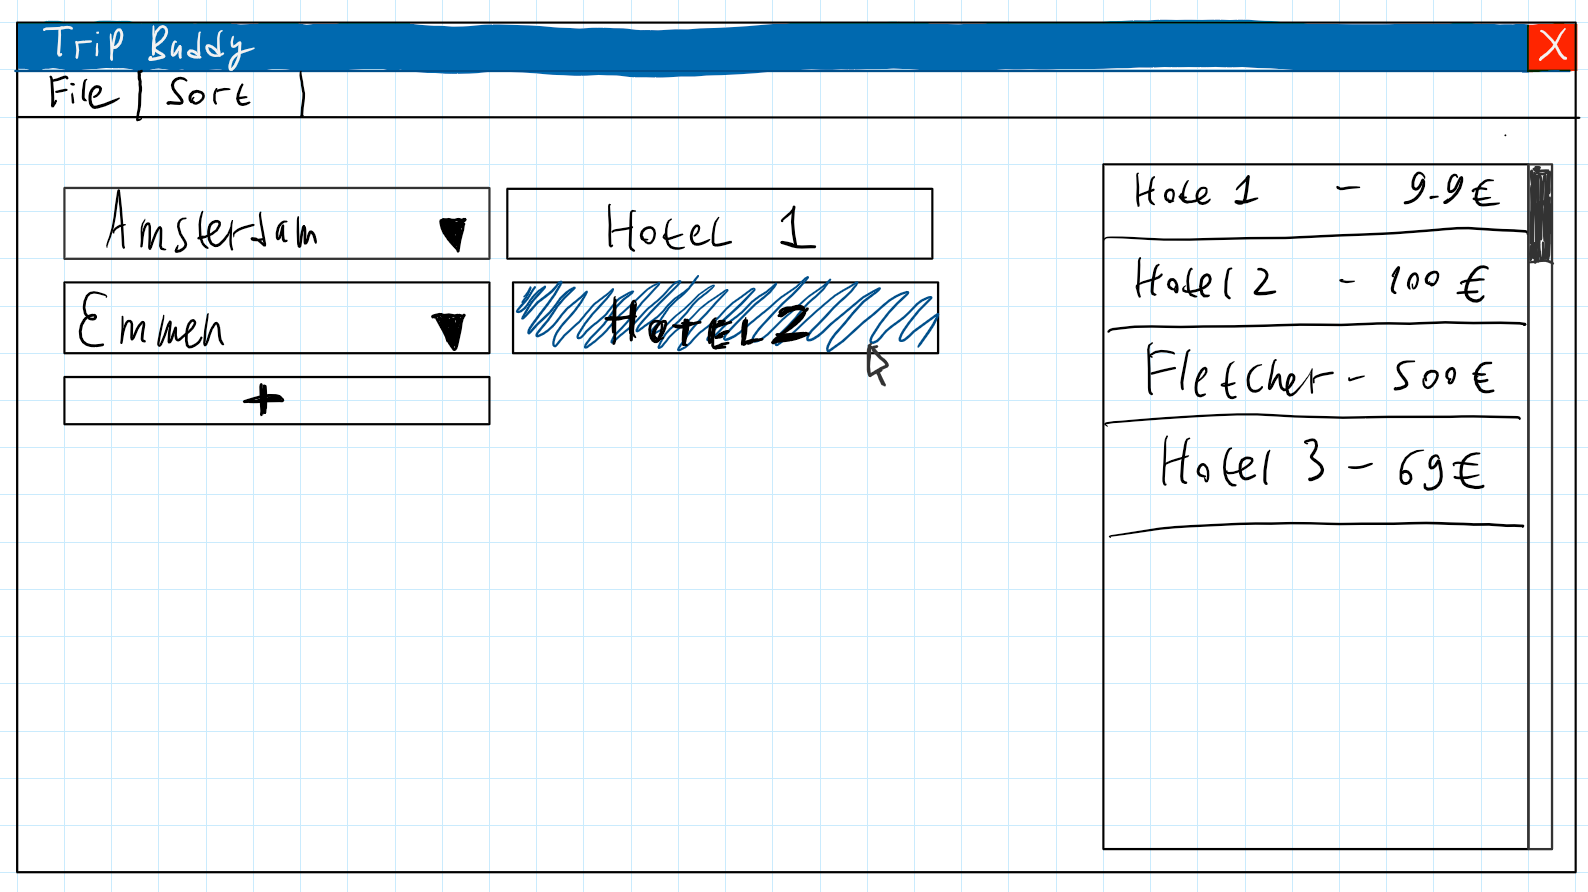 Trip Buddy X
File Sort
Amsterdam Hotel 1
Emmen HOTEL 2
+
Hote 1 - 9.9€
Hotel 2 - 100 €
Fletcher - 500€
Hotel 3 - 69€